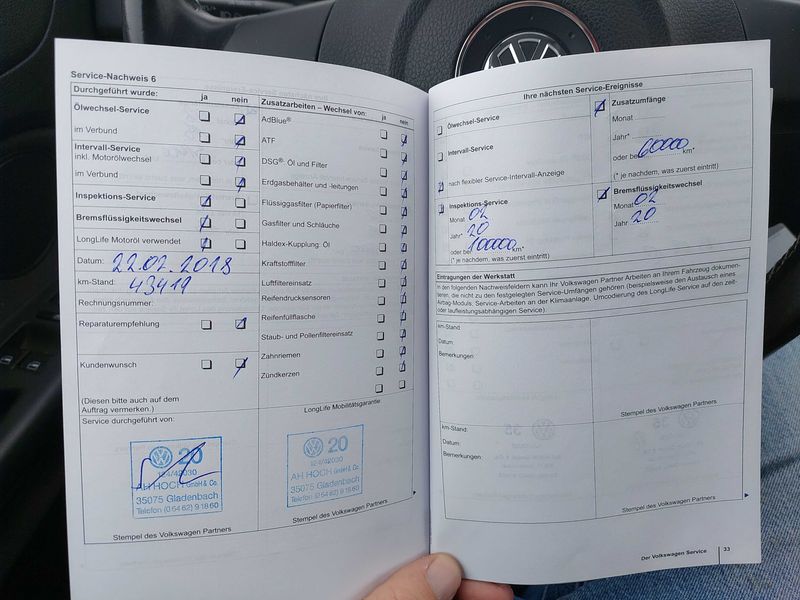 Service-Nachweis 6
Durchgeführt wurde: ja nein
Ölwechsel-Service
im Verbund
Intervall-Service
inkl. Motorölwechsel
im Verbund
Inspektions-Service
Bremsflüssigkeitswechsel
LongLife Motoröl verwendet
Datum: 22.02.2018
km-Stand: 43419
Rechnungsnummer:
Reparaturempfehlung
Kundenwunsch
(Diesen bitte auch auf dem
Auftrag vermerken.)
Service durchgeführt von:
20
AH HOCH GmbH & Co.
35075 Gladenbach
Telefon (0 64 62) 9 18 60
Stempel des Volkswagen Partners
Zusatzarbeiten – Wechsel von: ja nein
AdBlue®
ATF
DSG®: Öl und Filter
Erdgasbehälter und -leitungen
Flüssiggasfilter (Papierfilter)
Gasfilter und Schläuche
Haldex-Kupplung: Öl
Kraftstofffilter
Luftfiltereinsatz
Reifendrucksensoren
Reifenfüllflasche
Staub- und Pollenfiltereinsatz
Zahnriemen
Zündkerzen
LongLife Mobilitätsgarantie
20
AH HOCH GmbH & Co.
35075 Gladenbach
Telefon (0 64 62) 9 18 60
Stempel des Volkswagen Partners
Ihre nächsten Service-Ereignisse
Ölwechsel-Service
Intervall-Service
nach flexibler Service-Intervall-Anzeige
Inspektions-Service
Monat 02
Jahr* 20
oder bei 10000 km*
(* je nachdem, was zuerst eintritt)
Zusatzumfänge
Monat
Jahr*
oder bei 60000 km*
(* je nachdem, was zuerst eintritt)
Bremsflüssigkeitswechsel
Monat 02
Jahr 20
Eintragungen der Werkstatt
In den folgenden Nachweisfeldern kann Ihr Volkswagen Partner Arbeiten an Ihrem Fahrzeug dokumen-
tieren, die nicht zu den festgelegten Service-Umfängen gehören (beispielsweise den Austausch eines
Airbag-Moduls; Service-Arbeiten an der Klimaanlage, Umcodierung des LongLife Service auf den zeit-
oder laufleistungsabhängigen Service).
km-Stand
Datum:
Bemerkungen:
Stempel des Volkswagen Partners
km-Stand:
Datum:
Bemerkungen:
Stempel des Volkswagen Partners
Der Volkswagen Service 33